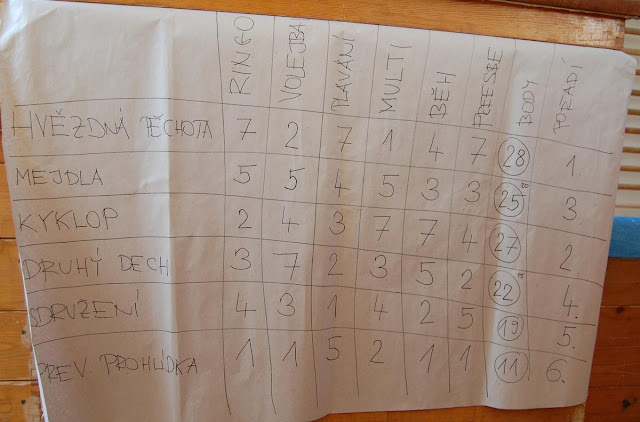 RINGO VOLEJBA PLAVÁNÍ MULTI BĚH FREESBE BODY POŘADÍ
HVĚZDNÁ PĚCHOTA 7 2 7 1 4 7 28 1.
MEJDLA 5 5 4 5 3 3 25 3.
KYKLOP 2 4 3 7 7 4 27 2
DRUHÝ DECH 3 7 2 3 5 2 22 4.
SDRUŽENÍ 4 3 1 4 2 5 19 5.
PREV. PROHLÍDKA 1 1 5 2 1 1 11 6.